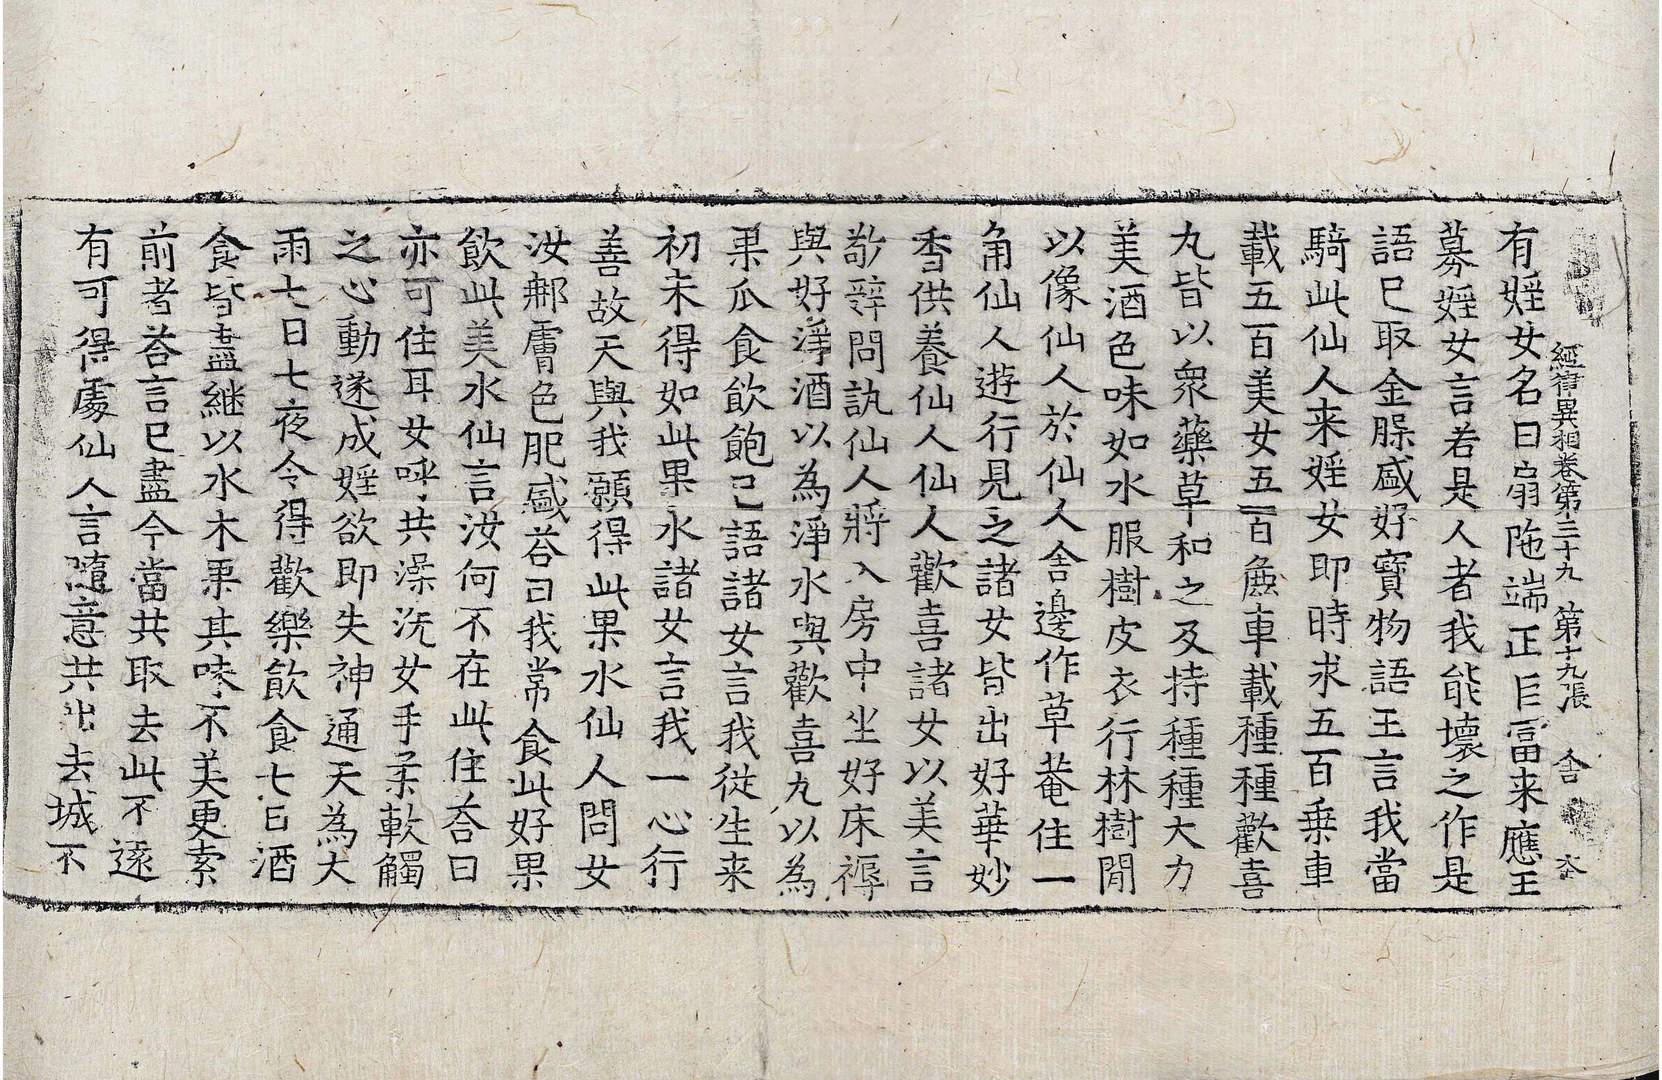 經律異相卷第三十九 第十九張 舍
有婬女名曰扇陁端正巨富来應王
募婬女言若是人者我能壞之作是
語已取金䑓盛好寶物語王言我當
騎此仙人来婬女即時求五百乗車
載五百美女五百鹿車載種種歡喜
丸皆以衆藥草和之及持種種大力
美酒色味如水服樹皮衣行林樹閒
以像仙人於仙人舍邊作草菴住一
角仙人遊行見之諸女皆出好華妙
香供養仙人仙人歡喜諸女以美言
敬辝問訊仙人將入房中坐好床褥
與好淨酒以為淨水與歡喜丸以為
果瓜食飲飽已語諸女言我從生来
初未得如此果水諸女言我一心行
善故天與我願得此果水仙人問女
汝郍膚色肥盛荅曰我常食此好果
飲此美水仙言汝何不在此住荅曰
亦可住耳女呼共澡洗女手柔軟觸
之心動遂成婬欲即失神通天為大
雨七日七夜令得歡樂飲食七日酒
食皆盡継以水木果其味不美更索
前者荅言已盡今當共取去此不遠
有可得處仙人言隨意共出去城不